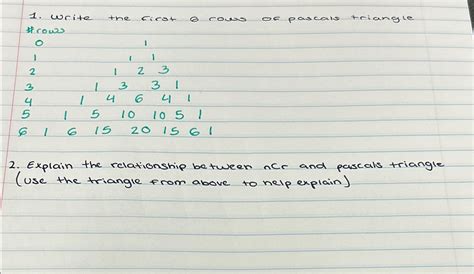 1. Write the first 6 rows of pascals triangle
# rows
0 1
1 1 1
2 1 2 3
3 1 3 3 1
4 1 4 6 4 1
5 1 5 10 10 5 1
6 1 6 15 20 15 6 1
2. Explain the relationship between nCr and pascals triangle
(use the triangle from above to help explain)